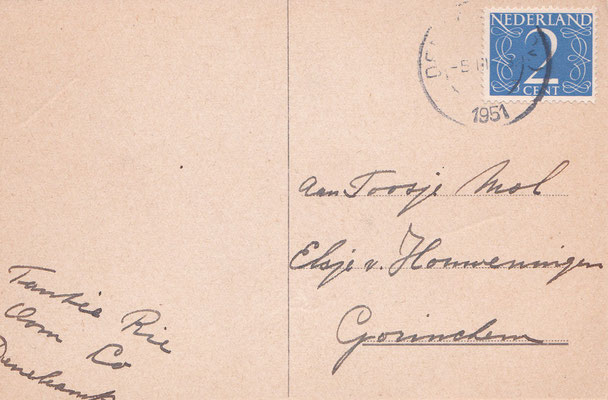 NEDERLAND
2
CENT
1951
Aan Toosje Mol
Elsje v. Houweningen
Gorinchem
Tantie Rie
Oom Co
Denekamp